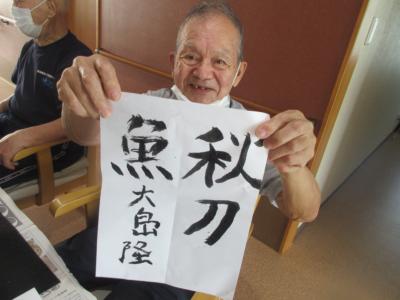 秋刀
魚
大島隆